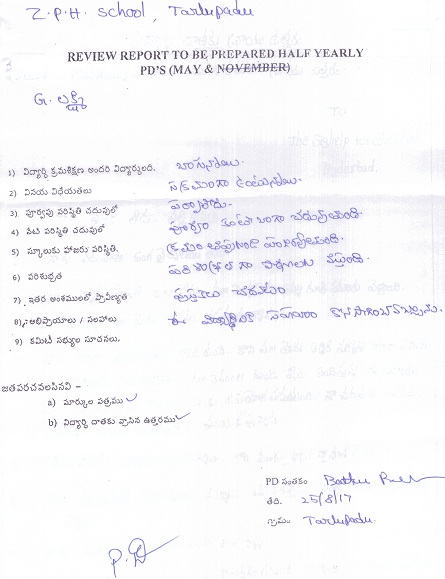 Z.P.H. School, Tarlupadu
REVIEW REPORT TO BE PREPARED HALF YEARLY
PD'S (MAY & NOVEMBER)
G. లక్ష్మి
1) విద్యార్థి క్రమశిక్షణ అందరి విద్యార్థులది. బాగున్నాయి.
2) వినయ విధేయతలు సక్రమంగా ఉన్నాయి.
3) పూర్వపు పరిస్థితి చదువులో పర్వాలేదు.
4) నేటి పరిస్థితి చదువులో చదువుతుంది.
5) స్కూలుకు హాజరు పరిస్థితి. క్రమం తప్పకుండా
6) పరిశుభ్రత పరిశుభ్రంగా వస్తుంది.
7) ఇతర అంశములలో ప్రావీణ్యత పుస్తకాలు చదవటం
8) అభిప్రాయాలు / సలహాలు ఈ సహాయం
9) కమిటీ సభ్యుల సూచనలు.
జతపరచవలసినవి –
a) మార్కుల పత్రము
b) విద్యార్థి దాతకు వ్రాసిన ఉత్తరము
PD సంతకం
తేది. 25/8/17
గ్రామం Tarlupadu